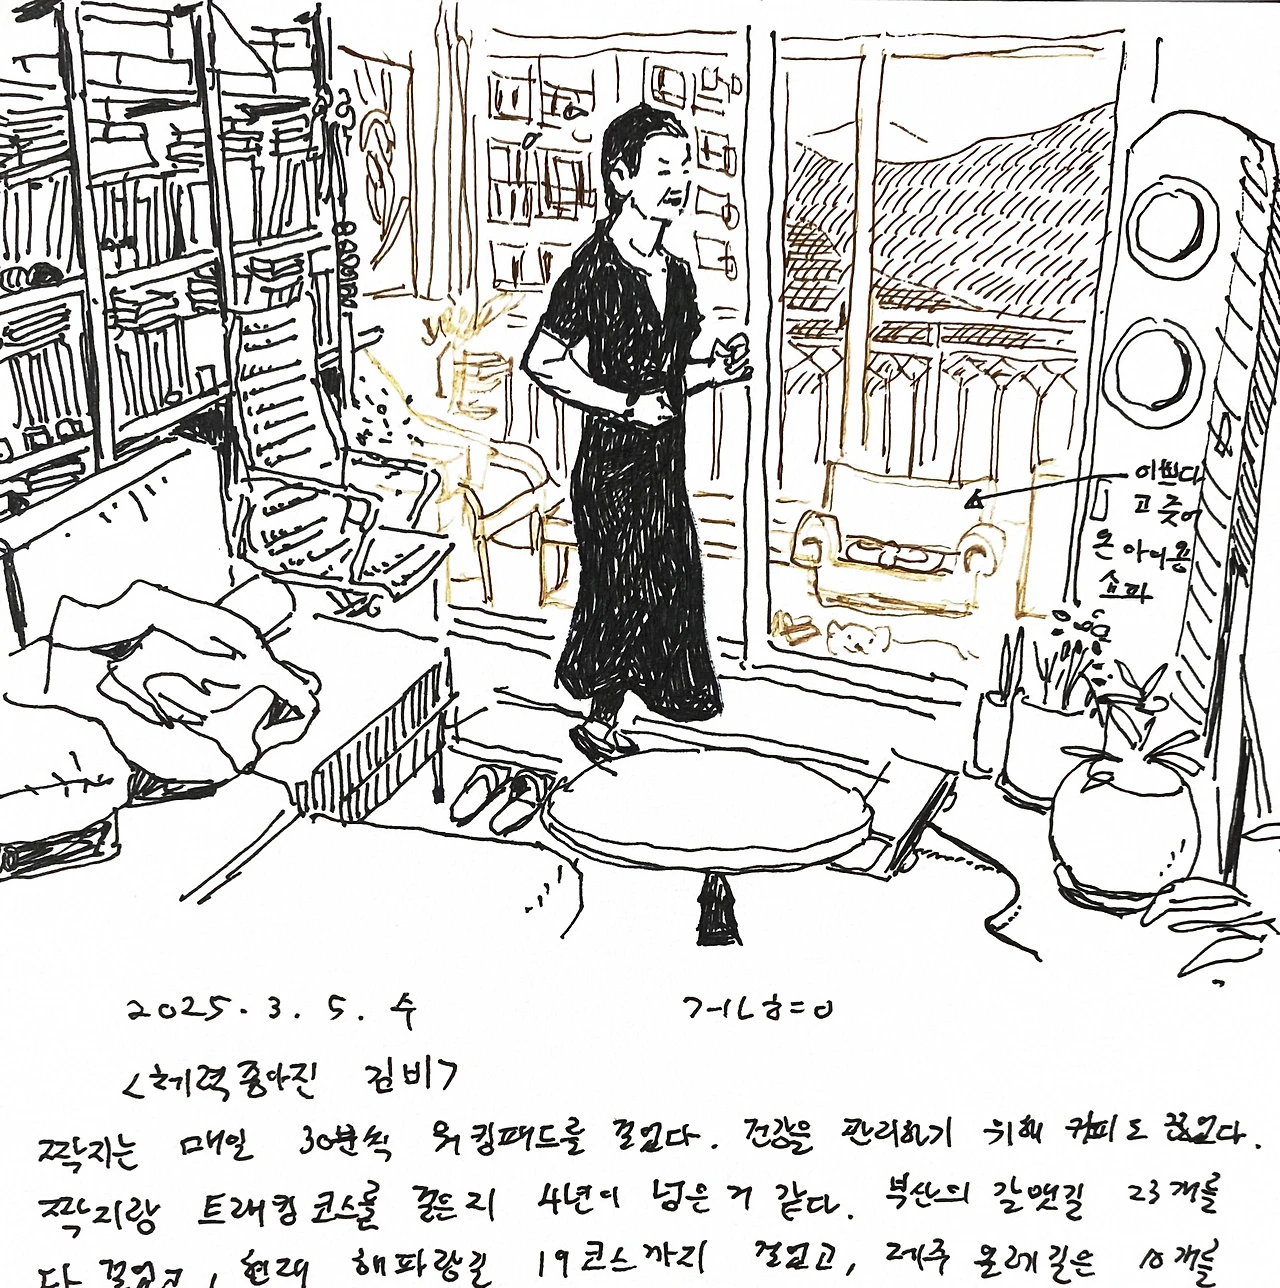 이쁘다
고 줏어
온 아이용
쇼파
2025. 3. 5. 수
거실ㅎ=0
<체력좋아진 김비>
짝지는 매일 30분씩 워킹패드를 걸었다. 건강을 관리하기 위해 커피도 끊었다.
짝지랑 트래킹 코스를 걸은지 4년이 넘은 거 같다. 부산의 갈맷길 23개를
다 걸었고, 현재 해파랑길 19코스까지 걸었고, 제주 올레길은 10개를